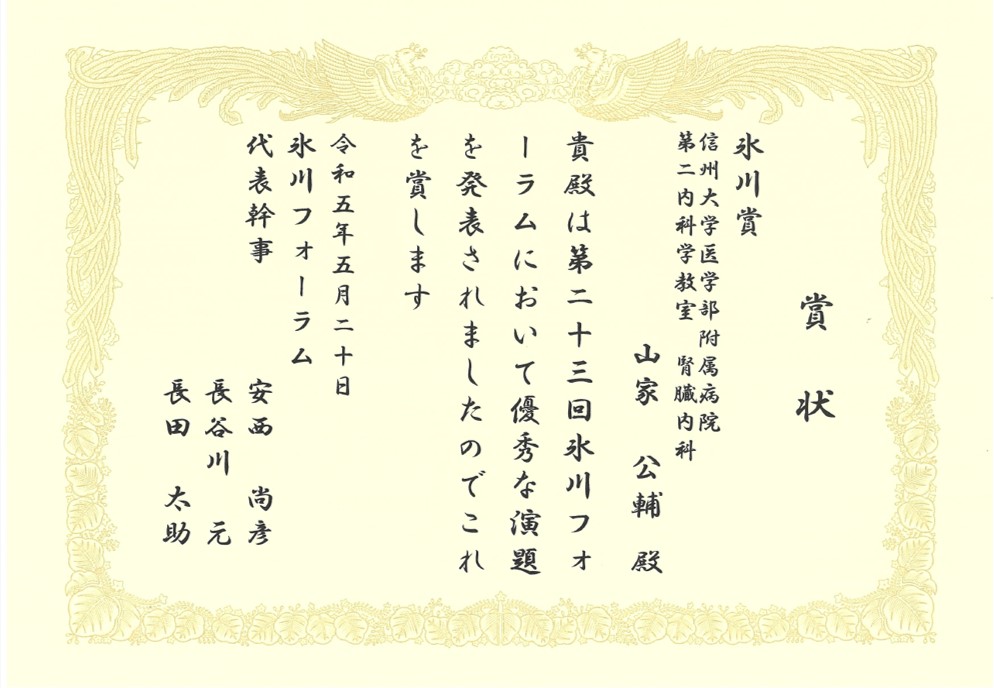 賞状
氷川賞
信州大学医学部附属病院
第二内科学教室 腎臓内科
山家 公輔 殿
貴殿は第二十三回氷川フォ
ーラムにおいて優秀な演題
を発表されましたのでこれ
を賞します
令和五年五月二十日
氷川フォーラム
代表幹事 安西 尚彦
長谷川 元
長田 太助